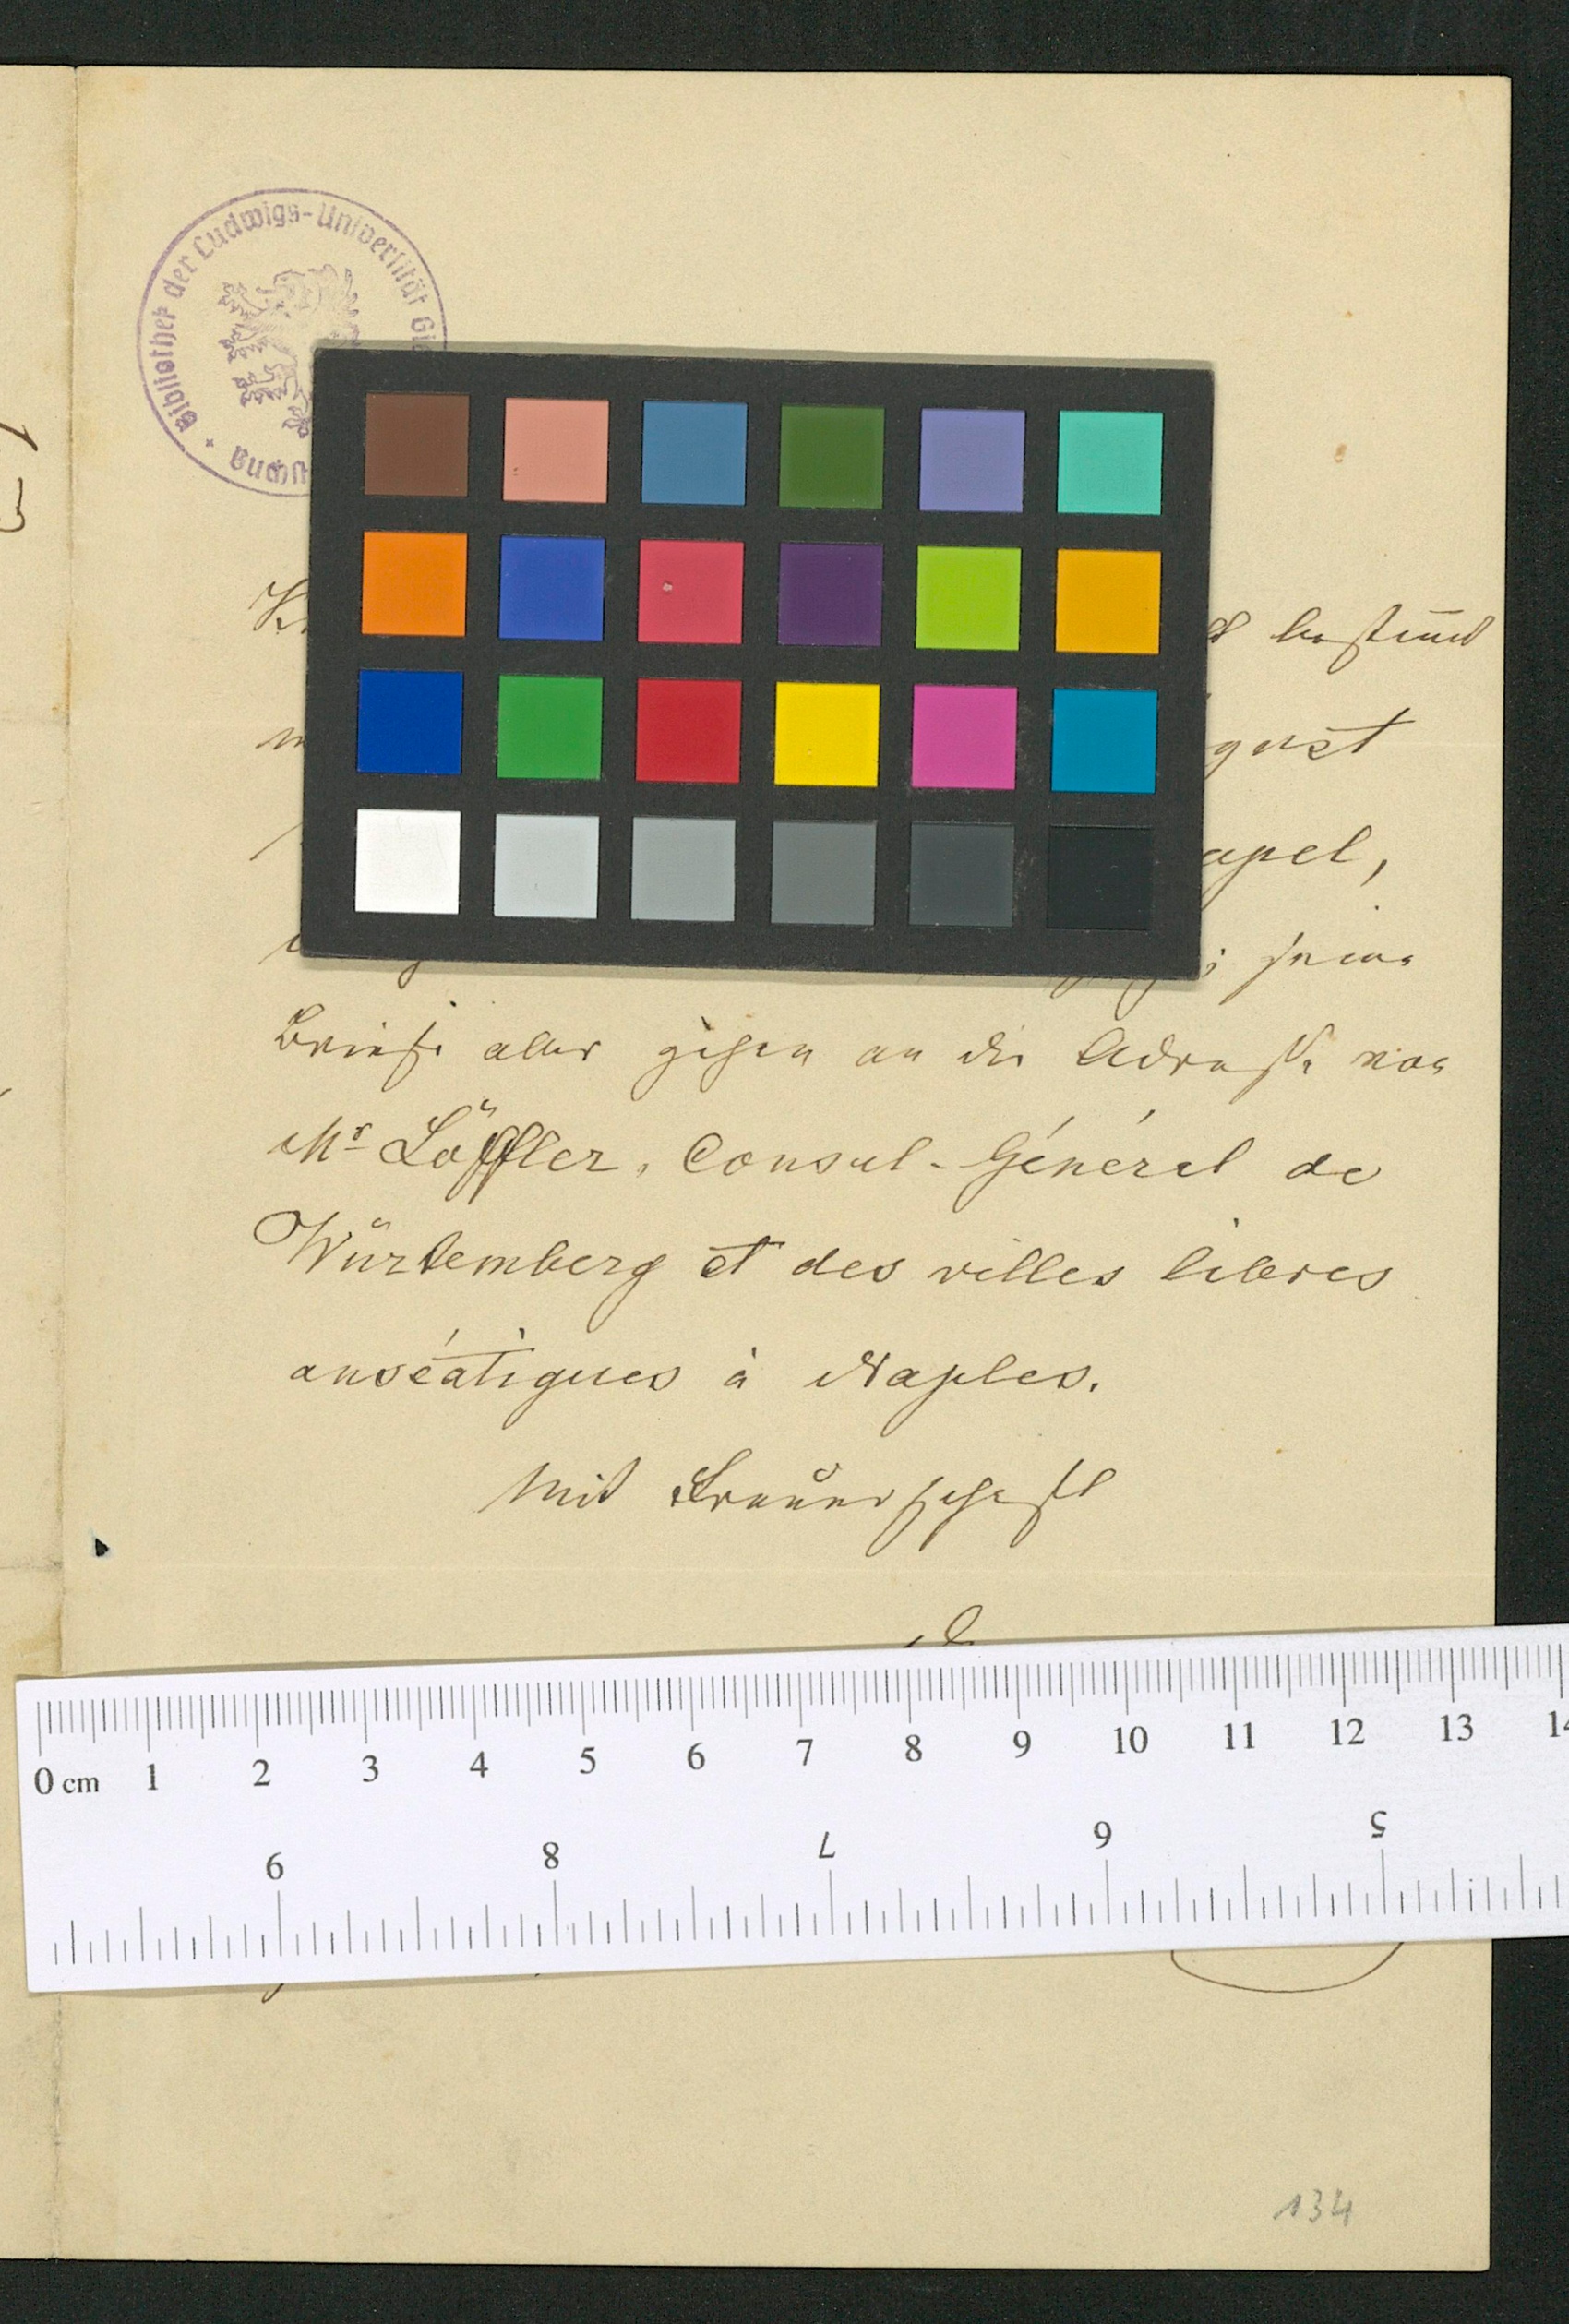 Bibliothek der Ludwigs-Universität Gie
bestimmt
gust
apel,
; seine
Briefe aber gehen an die Adresse von
Mr Löffler, Consul-Général de
Würtemberg et des villes libres
anséatiques à Naples.
Mit Freundschaft
0 cm 1 2 3 4 5 6 7 8 9 10 11 12 13 14
9 8 7 6 5
134